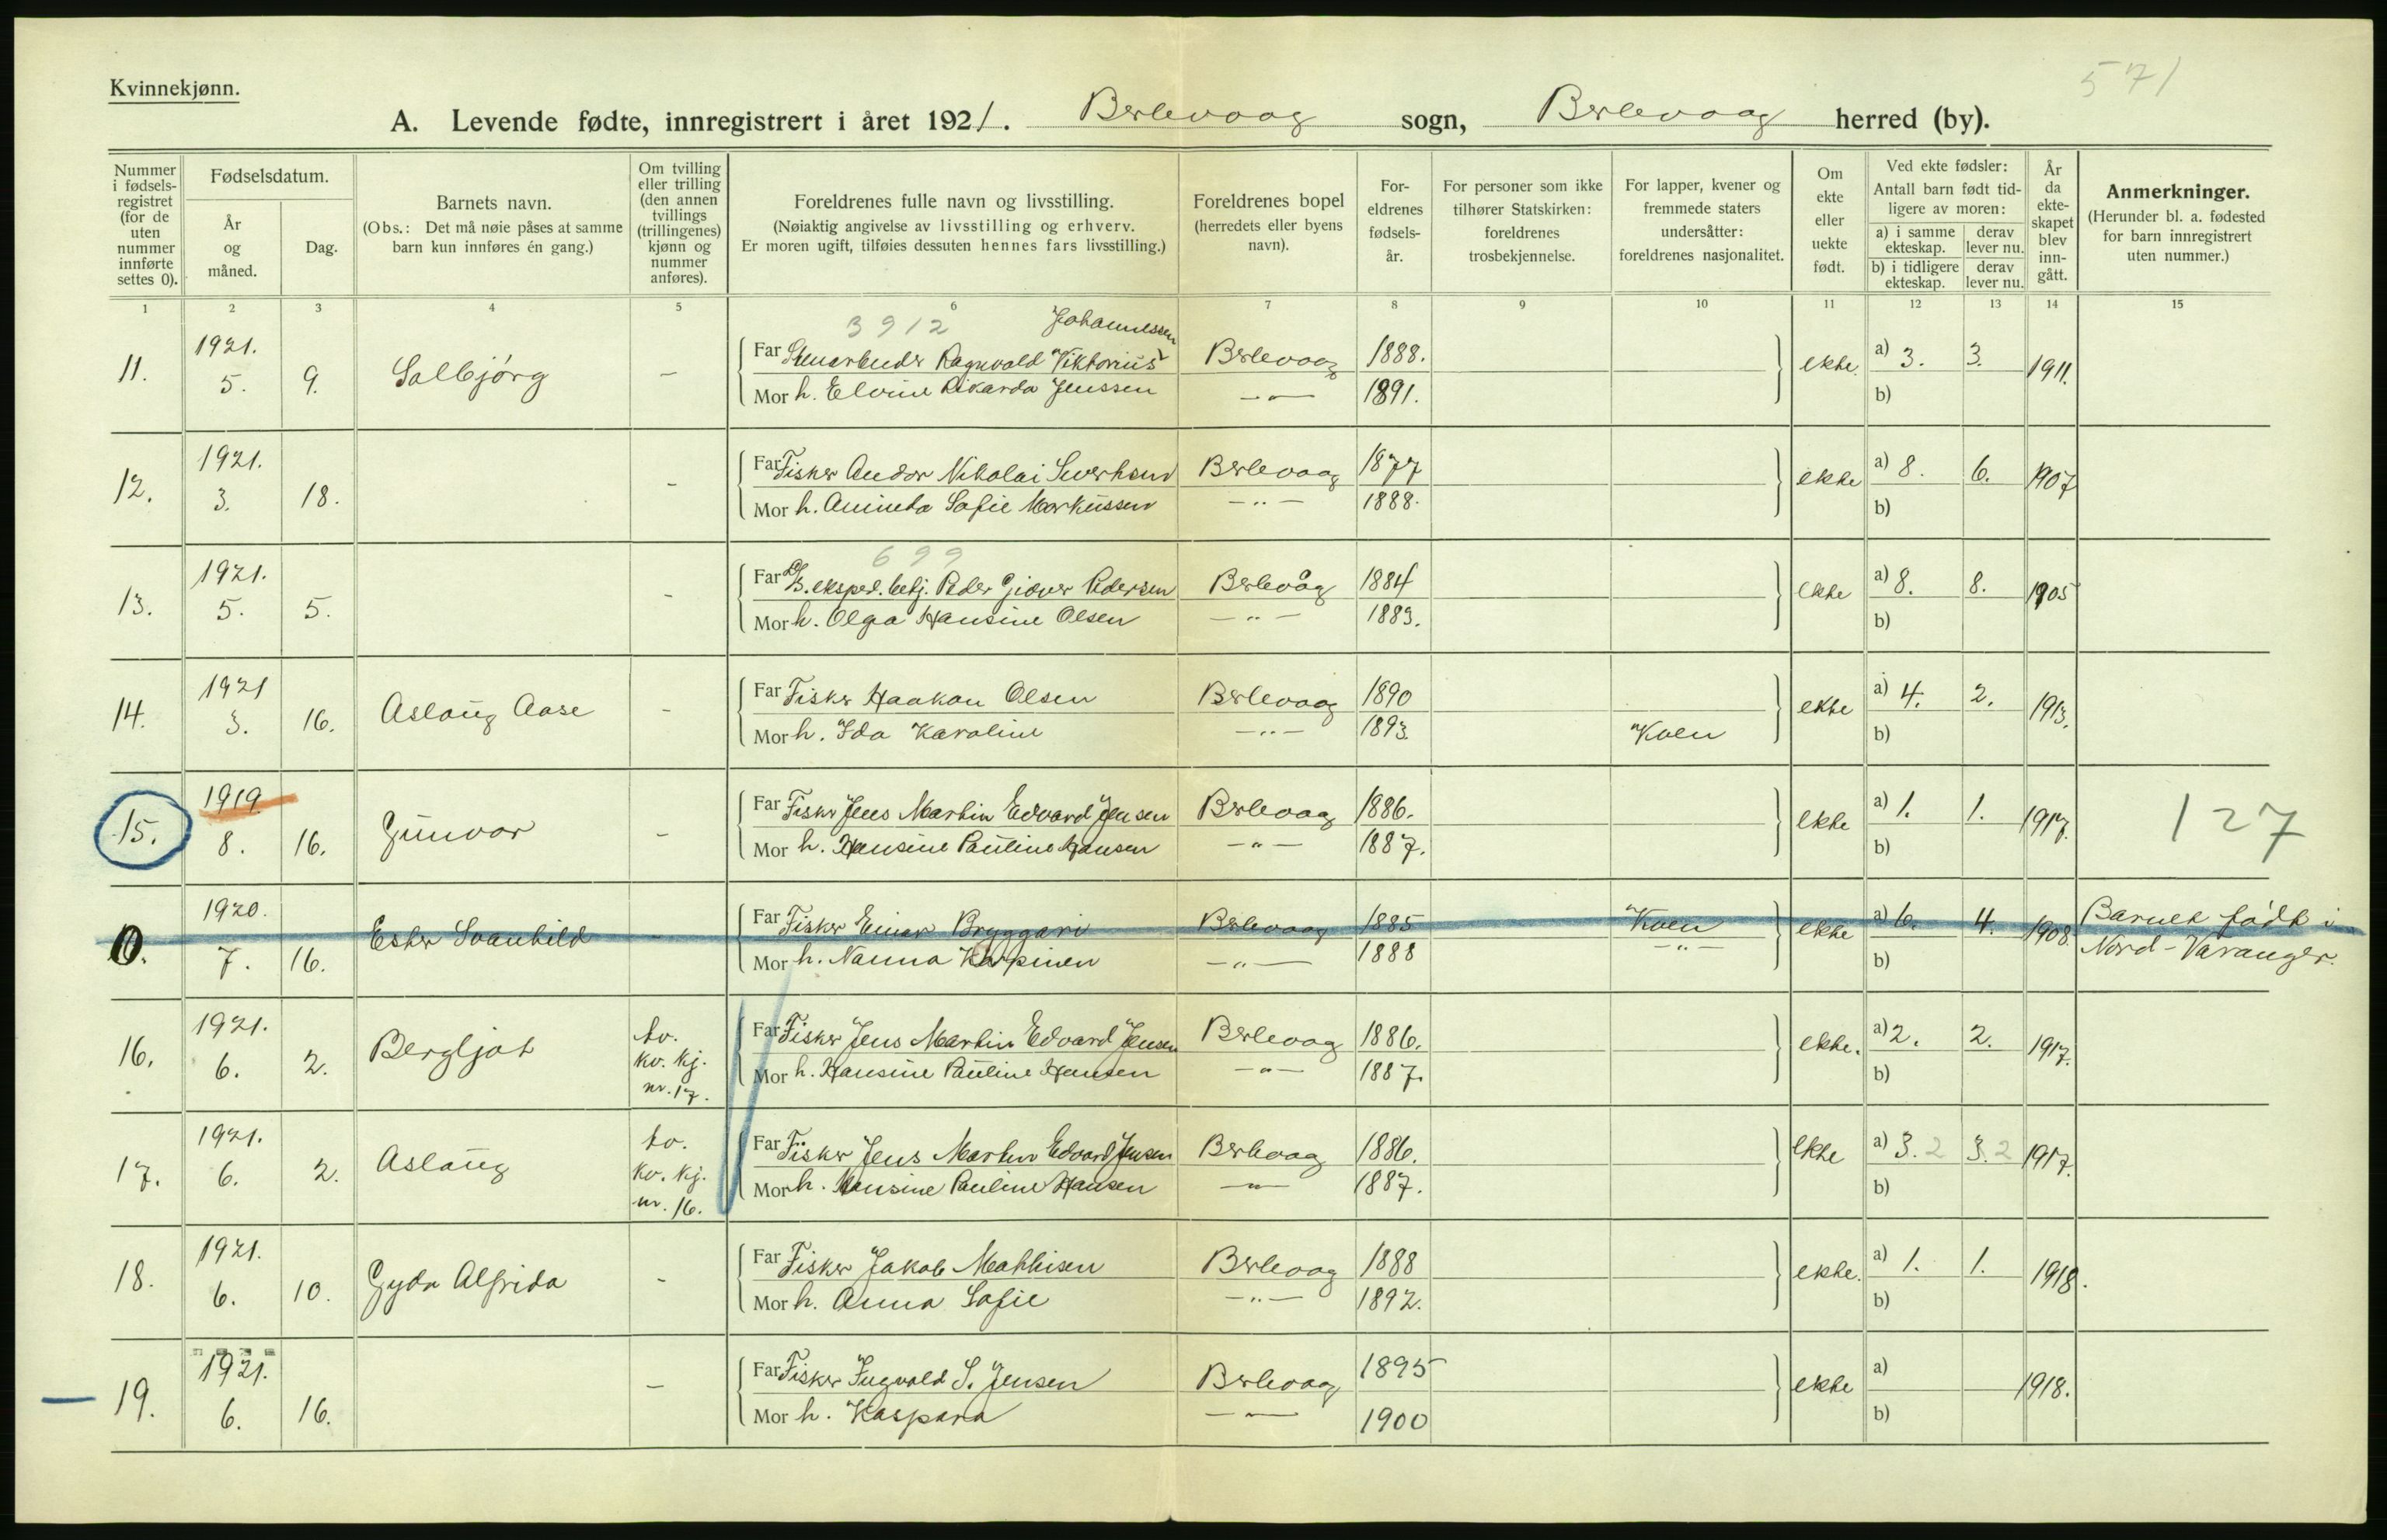 571
Kvinnekjønn.
A. Levende fødte, innregistrert i året 1921. Berlevaag sogn, Berlevaag herred (by).
Nummer i fødsels- registret (for de uten nummer innførte settes 0).
Fødselsdatum.
År og måned.
Dag.
Barnets navn.
(Obs.: Det må nøie påses at samme barn kun innføres én gang.)
Om tvilling eller trilling (den annen tvillings (trillingenes) kjønn og nummer anføres).
Foreldrenes fulle navn og livsstilling.
(Nøiaktig angivelse av livsstilling og erhverv. Er moren ugift, tilføies dessuten hennes fars livsstilling.)
Foreldrenes bopel (herredets eller byens navn).
For- eldrenes fødsels- år.
For personer som ikke tilhører Statskirken: foreldrenes trosbekjennelse.
For lapper, kvener og fremmede staters undersåtter: foreldrenes nasjonalitet.
Om ekte eller uekte født.
Ved ekte fødsler:
Antall barn født tid- ligere av moren:
a) i samme ekteskap.
derav lever nu.
b) i tidligere ekteskap.
derav lever nu.
År da ekte- skapet blev inn- gått.
Anmerkninger.
(Herunder bl. a. fødested for barn innregistrert uten nummer.)
1 2 3 4 5 6 7 8 9 10 11 12 13 14 15
3912 Johannessen
11. 1921. 5. 9. Solbjørg –
Far Ragnvald Viktorius Berlevaag 1888. ekte. a) 3. 3. 1911.
Mor h. Elvine Rikarda Jenssen –"– 1891. b)
12. 1921. 3. 18. –
Far Fisker Andor Nikolai Sivertsen Berlevaag 1877 ekte a) 8. 6. 1907
Mor h. Aminda Sofie Markussen –"– 1888. b)
699
13. 1921. 5. 5. –
Far eksped. betj. Peder Giæver Pedersen Berlevåg 1884 ekte a) 8. 8. 1905
Mor h. Olga Hansine Olsen –"– 1883. b)
14. 1921 3. 16. Aslaug Aase –
Far Fisker Haakon Olsen Berlevaag 1890 ekte a) 4. 2. 1913.
Mor h. Ida Karoline –"– 1893. Kven b)
15. 1919. 8. 16. Gunvor –
Far Fisker Jens Martin Edvard Jensen Berlevaag 1886. ekte a) 1. 1. 1917. 127
Mor h. Hansine Pauline Hansen –"– 1887. b)
0. 1920. 7. 16. Ester Svanhild –
Far Fisker Einar Bryggari Berlevaag 1885 Kven ekte a) 6. 4. 1908. Barnet født i
Mor h. Nanna Karpinen –"– 1888 –"– b) Nord-Varanger.
16. 1921. 6. 2. Bergljot tv. kv. kj. nr. 17.
Far Fisker Jens Martin Edvard Jensen Berlevaag 1886. ekte. a) 2. 2. 1917.
Mor h. Hansine Pauline Hansen –"– 1887. b)
17. 1921. 6. 2. Aslaug tv. kv. kj. nr. 16.
Far Fisker Jens Martin Edvard Jensen Berlevaag 1886. ekte a) 3. 2 3. 2 1917.
Mor h. Hansine Pauline Hansen –"– 1887. b)
18. 1921. 6. 10. Gyda Alfrida –
Far Fisker Jakob Mathisen Berlevaag 1888 ekte. a) 1. 1. 1918.
Mor h. Anna Sofie –"– 1892. b)
19. 1921. 6. 16. –
Far Fisker Ingvald S. Jensen Berlevaag 1895 ekte a) 1918.
Mor h. Kaspara –"– 1900 b)